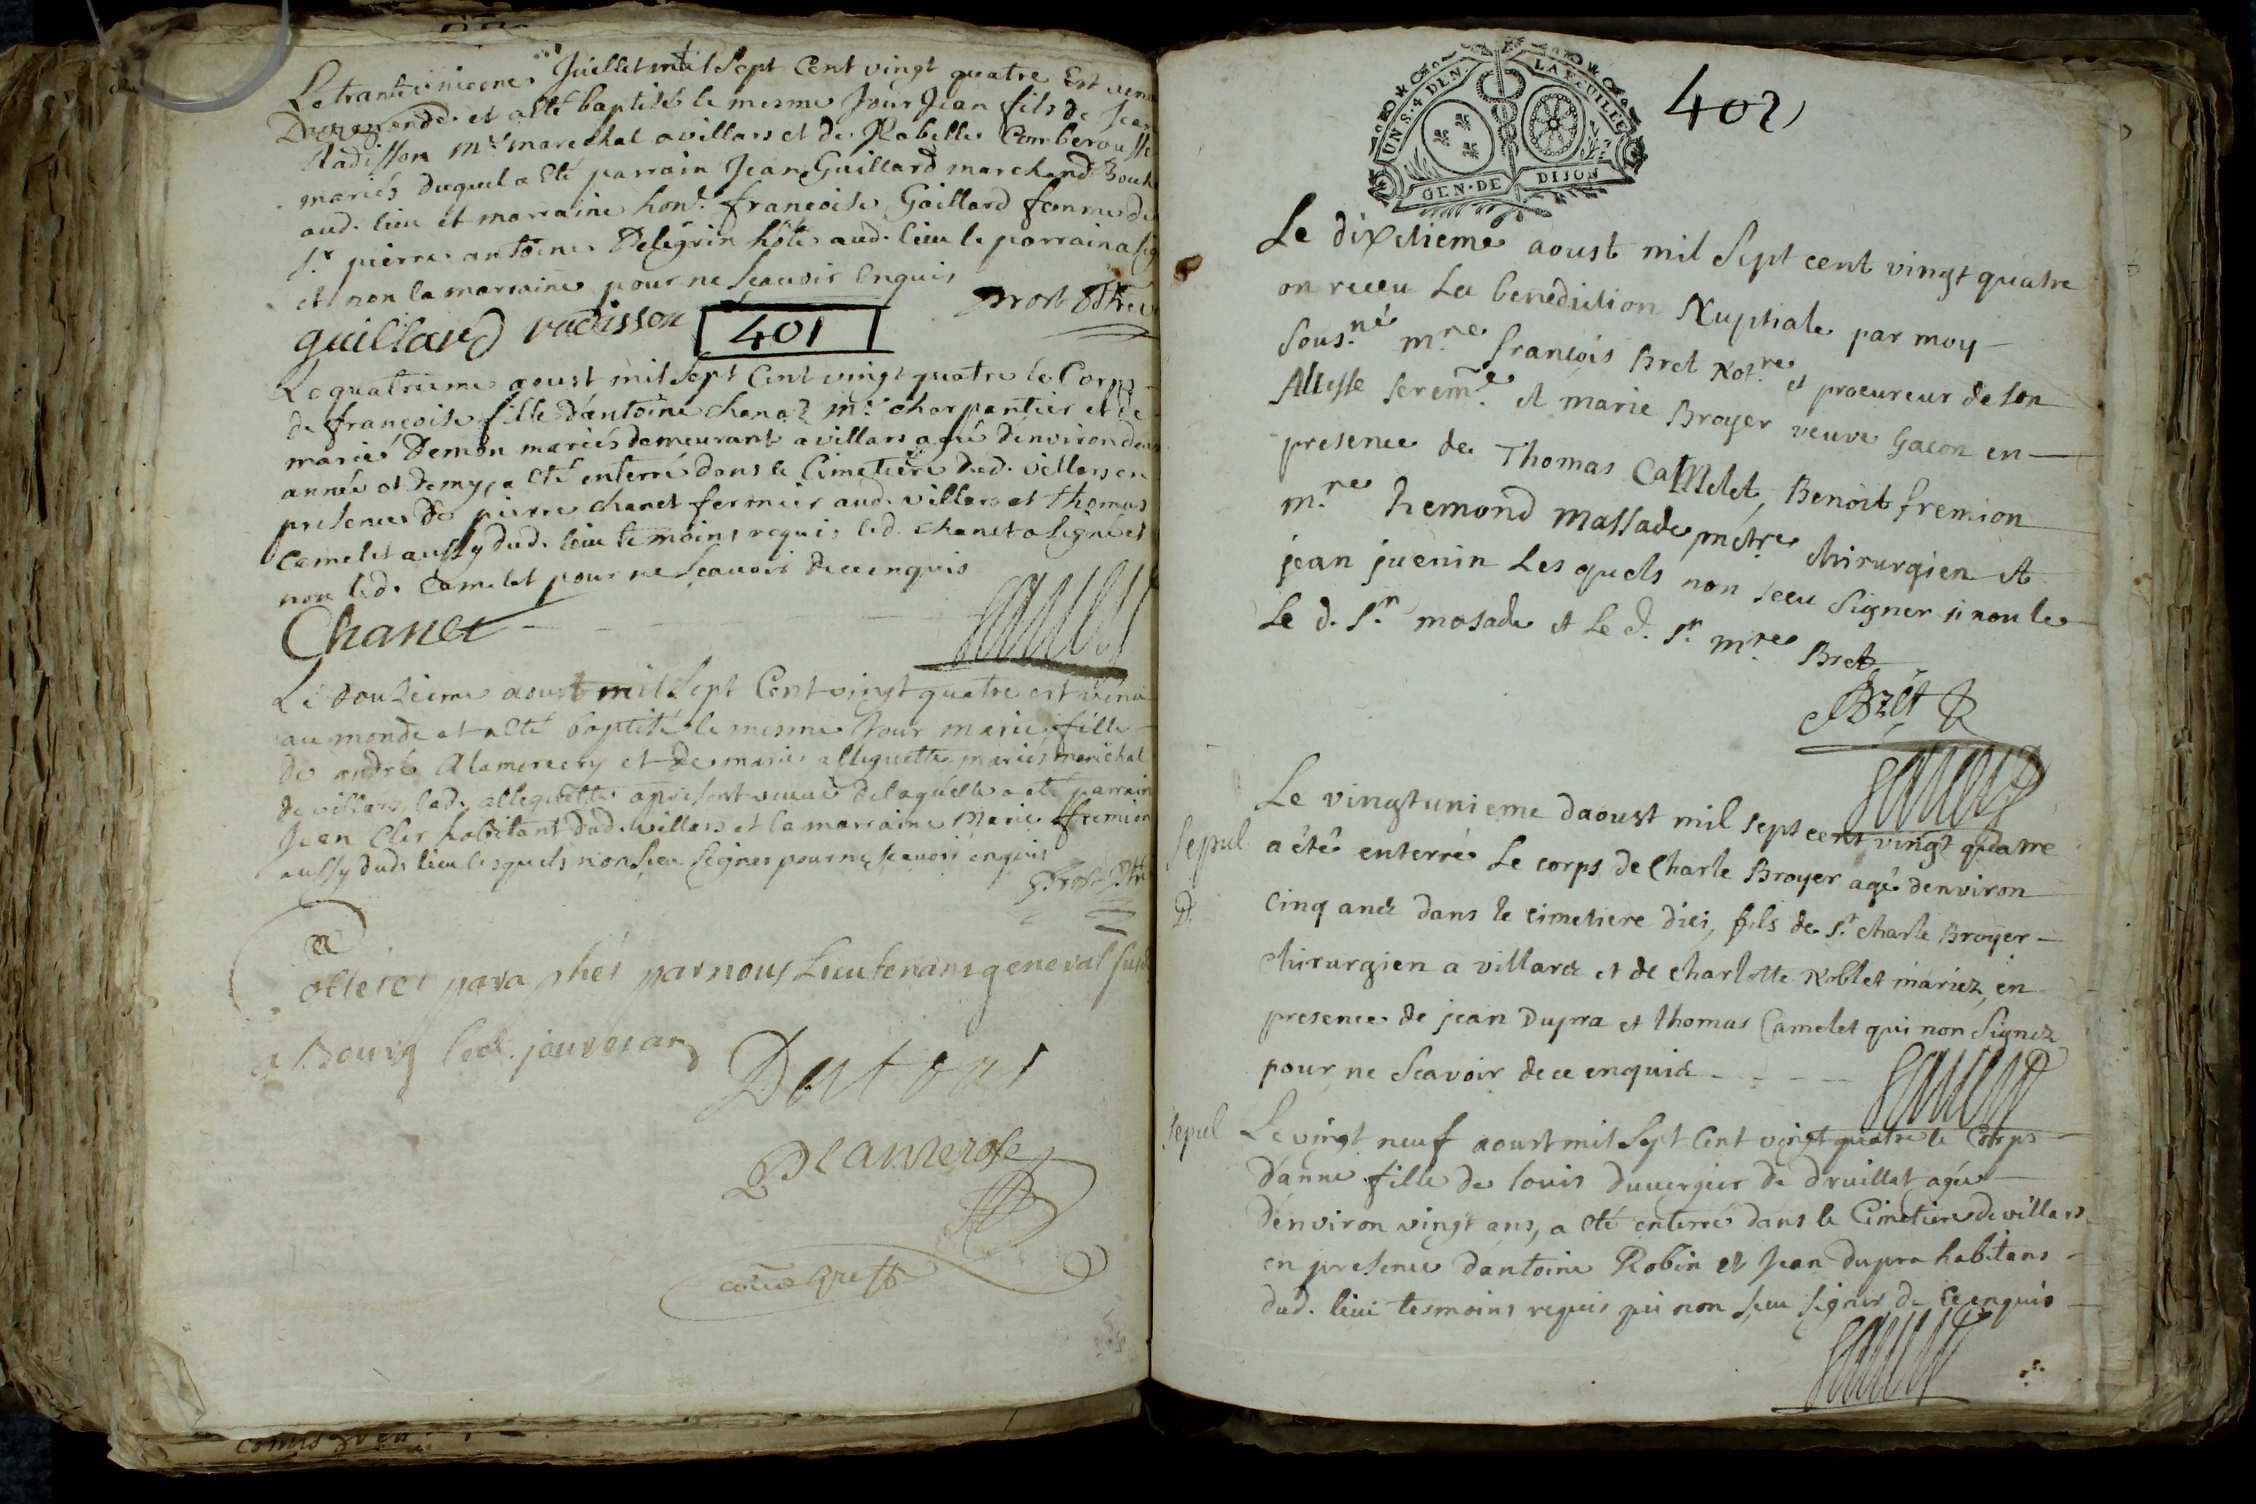 Le trante unieme Juillet mil sept cent vingt quatre Est venu
au monde et a esté baptisé le mesme jour Jean fils de Jean
Radisson mre marechal a villars et de Rabelle Comberousse
mariés duquel a été parrain Jean Guillard marchand
aud. lieu et marraine hon. francoise Gaillard femme de
sr. pierre antoine Pelegrin hôte aud. lieu le parrain a sig
et non la marraine pour ne scavoir enquis
guillard radisson Prost
401
Le quatrieme aoust mil sept cent vingt quatre le Corps
de francoise fille d'antoine chanaz mre charpantier et de
marie Demon mariés demeurant a villars agé d'environ deux
année et demy, a été enterré dans le Cimetiere dud. villars en
presence de pierre chanet fermier aud. villars et thomas
Camelet aussy dud. lieu temoins requis led. chanet a signé et
non led. Camelet pour ne scavoir de ce enquis
Chanet
Le douzieme aoust mil sept Cent vingt quatre est venu
au monde et a été baptisé le mesme jour marie fille
de andré Alamercery et de marie alleguette mariés marechal
de villars, lad. alleguette a present veuve de laquelle a été parrain
Jean Cler habitant dud. villars et la marraine Marie fremion
aussy dud. lieu lesquels n'on sceu signer pour ne scavoir enquis
Prost
par nous Lieutenant general
a Bourg led. jour et an
Dutour
Greff
UN S. 4 DEN. LA FEUILLE
GEN. DE DIJON
402
Le dixetieme aoust mil sept cent vingt quatre
on receu La benediction Nuptiale par moy
sous.né m.re francois Bret Not.re et procureur de son
Altesse serem.e et marie Broyer veuve Gacon en
presence de Thomas Camelet, Benoit fremion
m.re hemond massade chirurgien et
jean juenin Lesquels non sceu signer si non le
Le d. s.r mosade et Le d. s.r m.re Bret
Brêt
Sepul
Le vingtunieme daoust mil sept cent vingt quatre
a été enterré Le corps de Charle Broyer agé denviron
cinq ans dans le cimetiere dici, fils de s.r charle Broyer
chirurgien a villars et de charlotte Noblet mariez, en
presence de jean Dupra et thomas Camelet qui non signez
pour ne scavoir de ce enquis
Sepul
Le vingt neuf aoust mil sept Cent vingt quatre le Corps
d'anne fille de louis duvergier de druillat agée
denviron vingt ans, a été enterré dans le Cimetiere de villars
en presence dantoine Robin et Jean dupra habitans
dud. lieu tesmoins requis qui non sceu signer de ce enquis